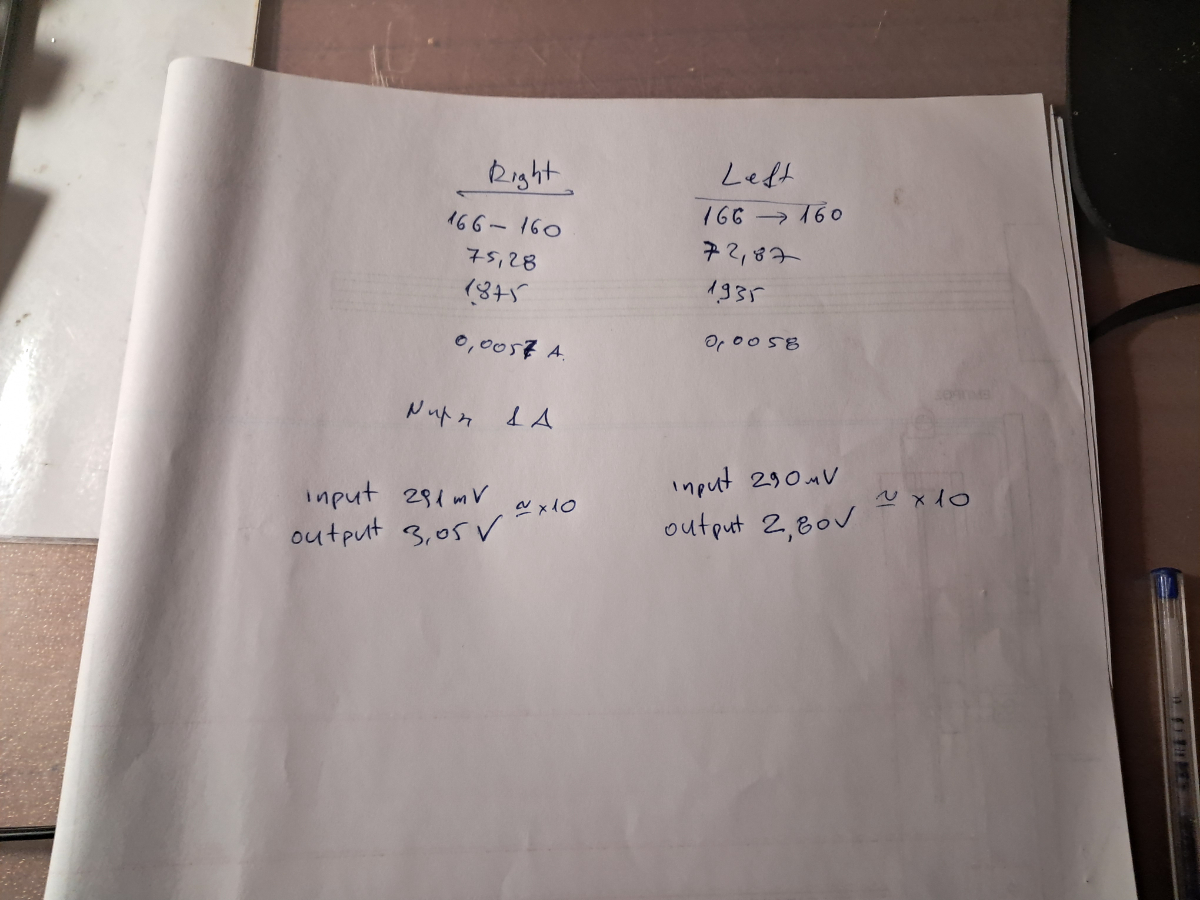 Right
166 – 160
75,28
1.875
0,0057 A.
Left
166 → 160
72,87
1.935
0,0058
1 A
input 291 mV
output 3,05 V
≃ x10
input 290 mV
output 2,80V
≃ x10